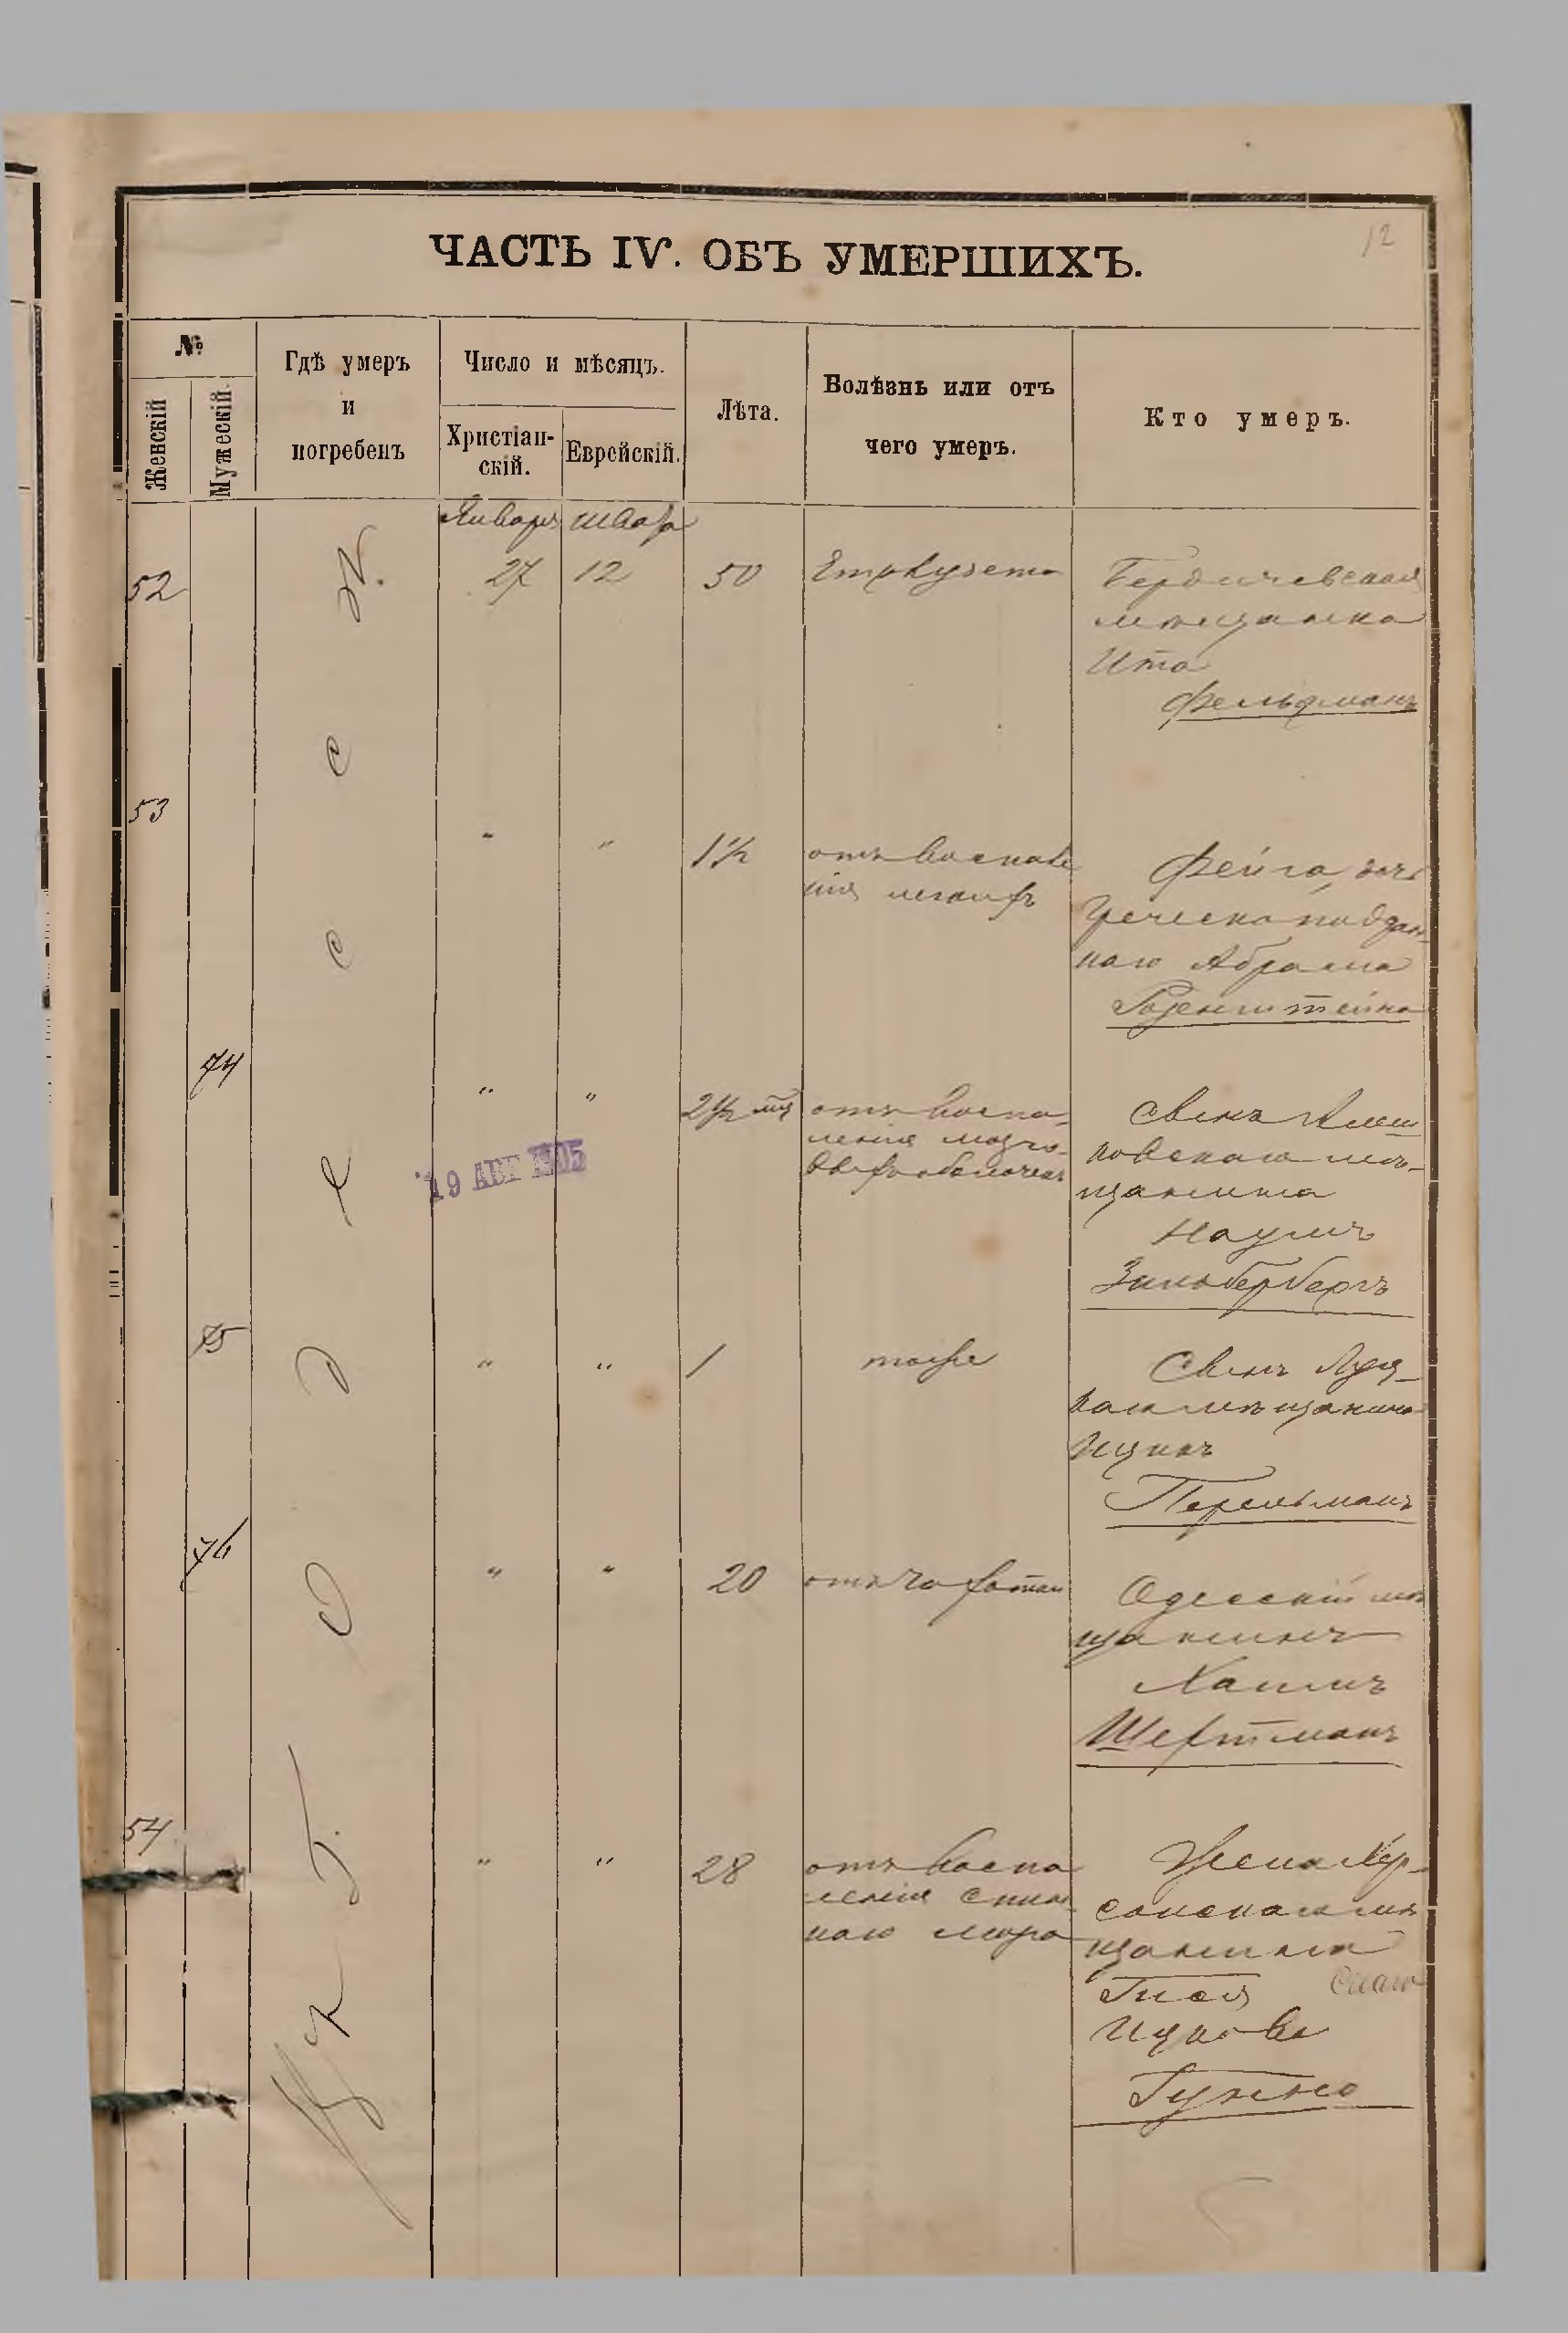 12
ЧАСТЬ IV. ОБЪ УМЕРШИХЪ.
№
Женскій
Мужескій.
Гдѣ умеръ
и
погребенъ
Число и мѣсяцъ.
Христіан-
скій.
Еврейскій.
Лѣта.
Болѣзнь или отъ
чего умеръ.
Кто умеръ.
Январь Шватъ
52
27 12 50
Бердичевская
мѣщанка
Ита
Фельдманъ
53
" " 1½ отъ воспале
нія легкихъ
Фейга, дочь
Греческо поддан-
наго Абрама
Розенштейна
74
" " 2½ отъ воспа-
ленія мозго-
выхъ оболочекъ
Сынъ
мѣ-
щанина
Наумъ
Зильбербергъ
19 АВГ 1905
75
" " 1 тоже
Сынъ
мѣщанина
Ицикъ
Перельманъ
76
" " 20 отъ чахотки
Одесскій мѣ
щанинъ
Хаимъ
Шертманъ
54
" " 28 отъ воспа
ленія спин
наго мозга
Жена Хер-
сонскаго мѣ
щанина
Гися
Ицкова